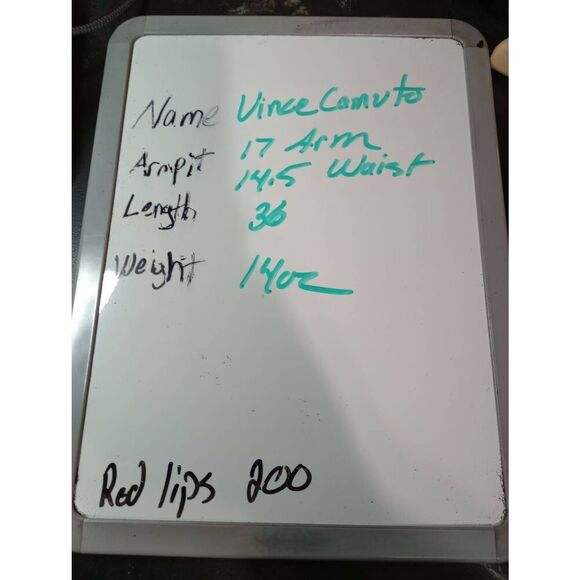 Name Vince Camuto
Armpit 17 Arm
14.5 Waist
Length 36
Weight 14oz
Red lips 200